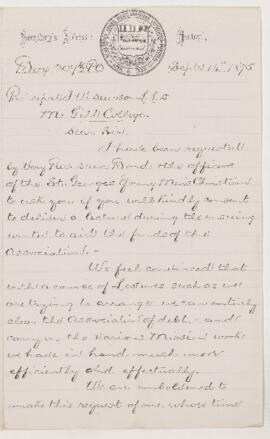 Secretary's Address:
Box
Sept 14th 1875
Principal Dawson L.L.D
McGill College.
Dear Sir.
I have been requested
by Very Rev Dean Bond & the officers
of the St. Georges Young Men's Christian
to ask you if you will kindly consent
to deliver a lecture during the ensuing
winter to aid the funds of the
Association. -
We feel convinced that
with a course of Lectures such as we
are trying to arrange we can entirely
clear the Association of debt, - and
carry on the various Mission works
we have in hand much more
efficiently and effectually.
We are emboldened to
make this request of one whose time